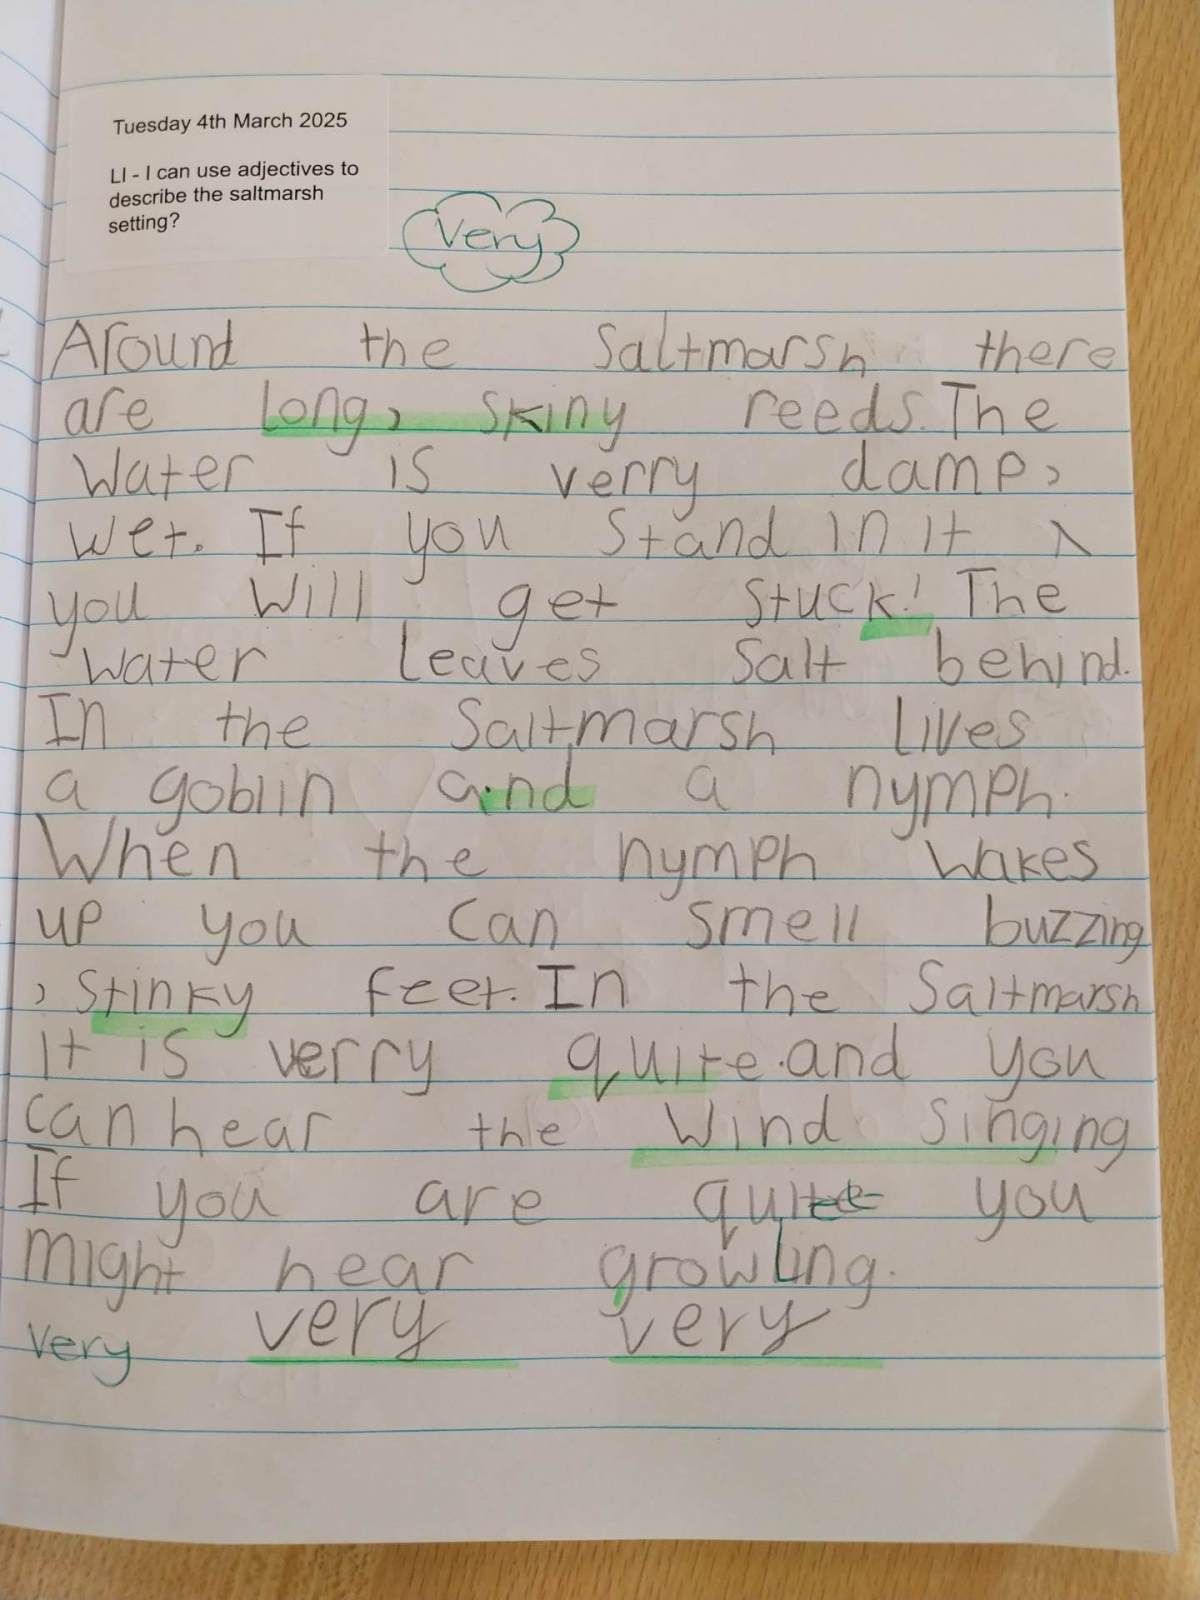 Tuesday 4th March 2025
LI - I can use adjectives to
describe the saltmarsh
setting?
Very
Around the Saltmarsh there
are long, skiny reeds. The
water is verry damp,
wet. If you stand in it
you will get stuck! The
water leaves salt behind.
In the Saltmarsh lives
a goblin and a nymph.
When the nymph wakes
up you can smell buzzing
, stinky feet. In the Saltmarsh
it is verry quite. and you
can hear the wind singing
If you are quite you
might hear growling.
very very very